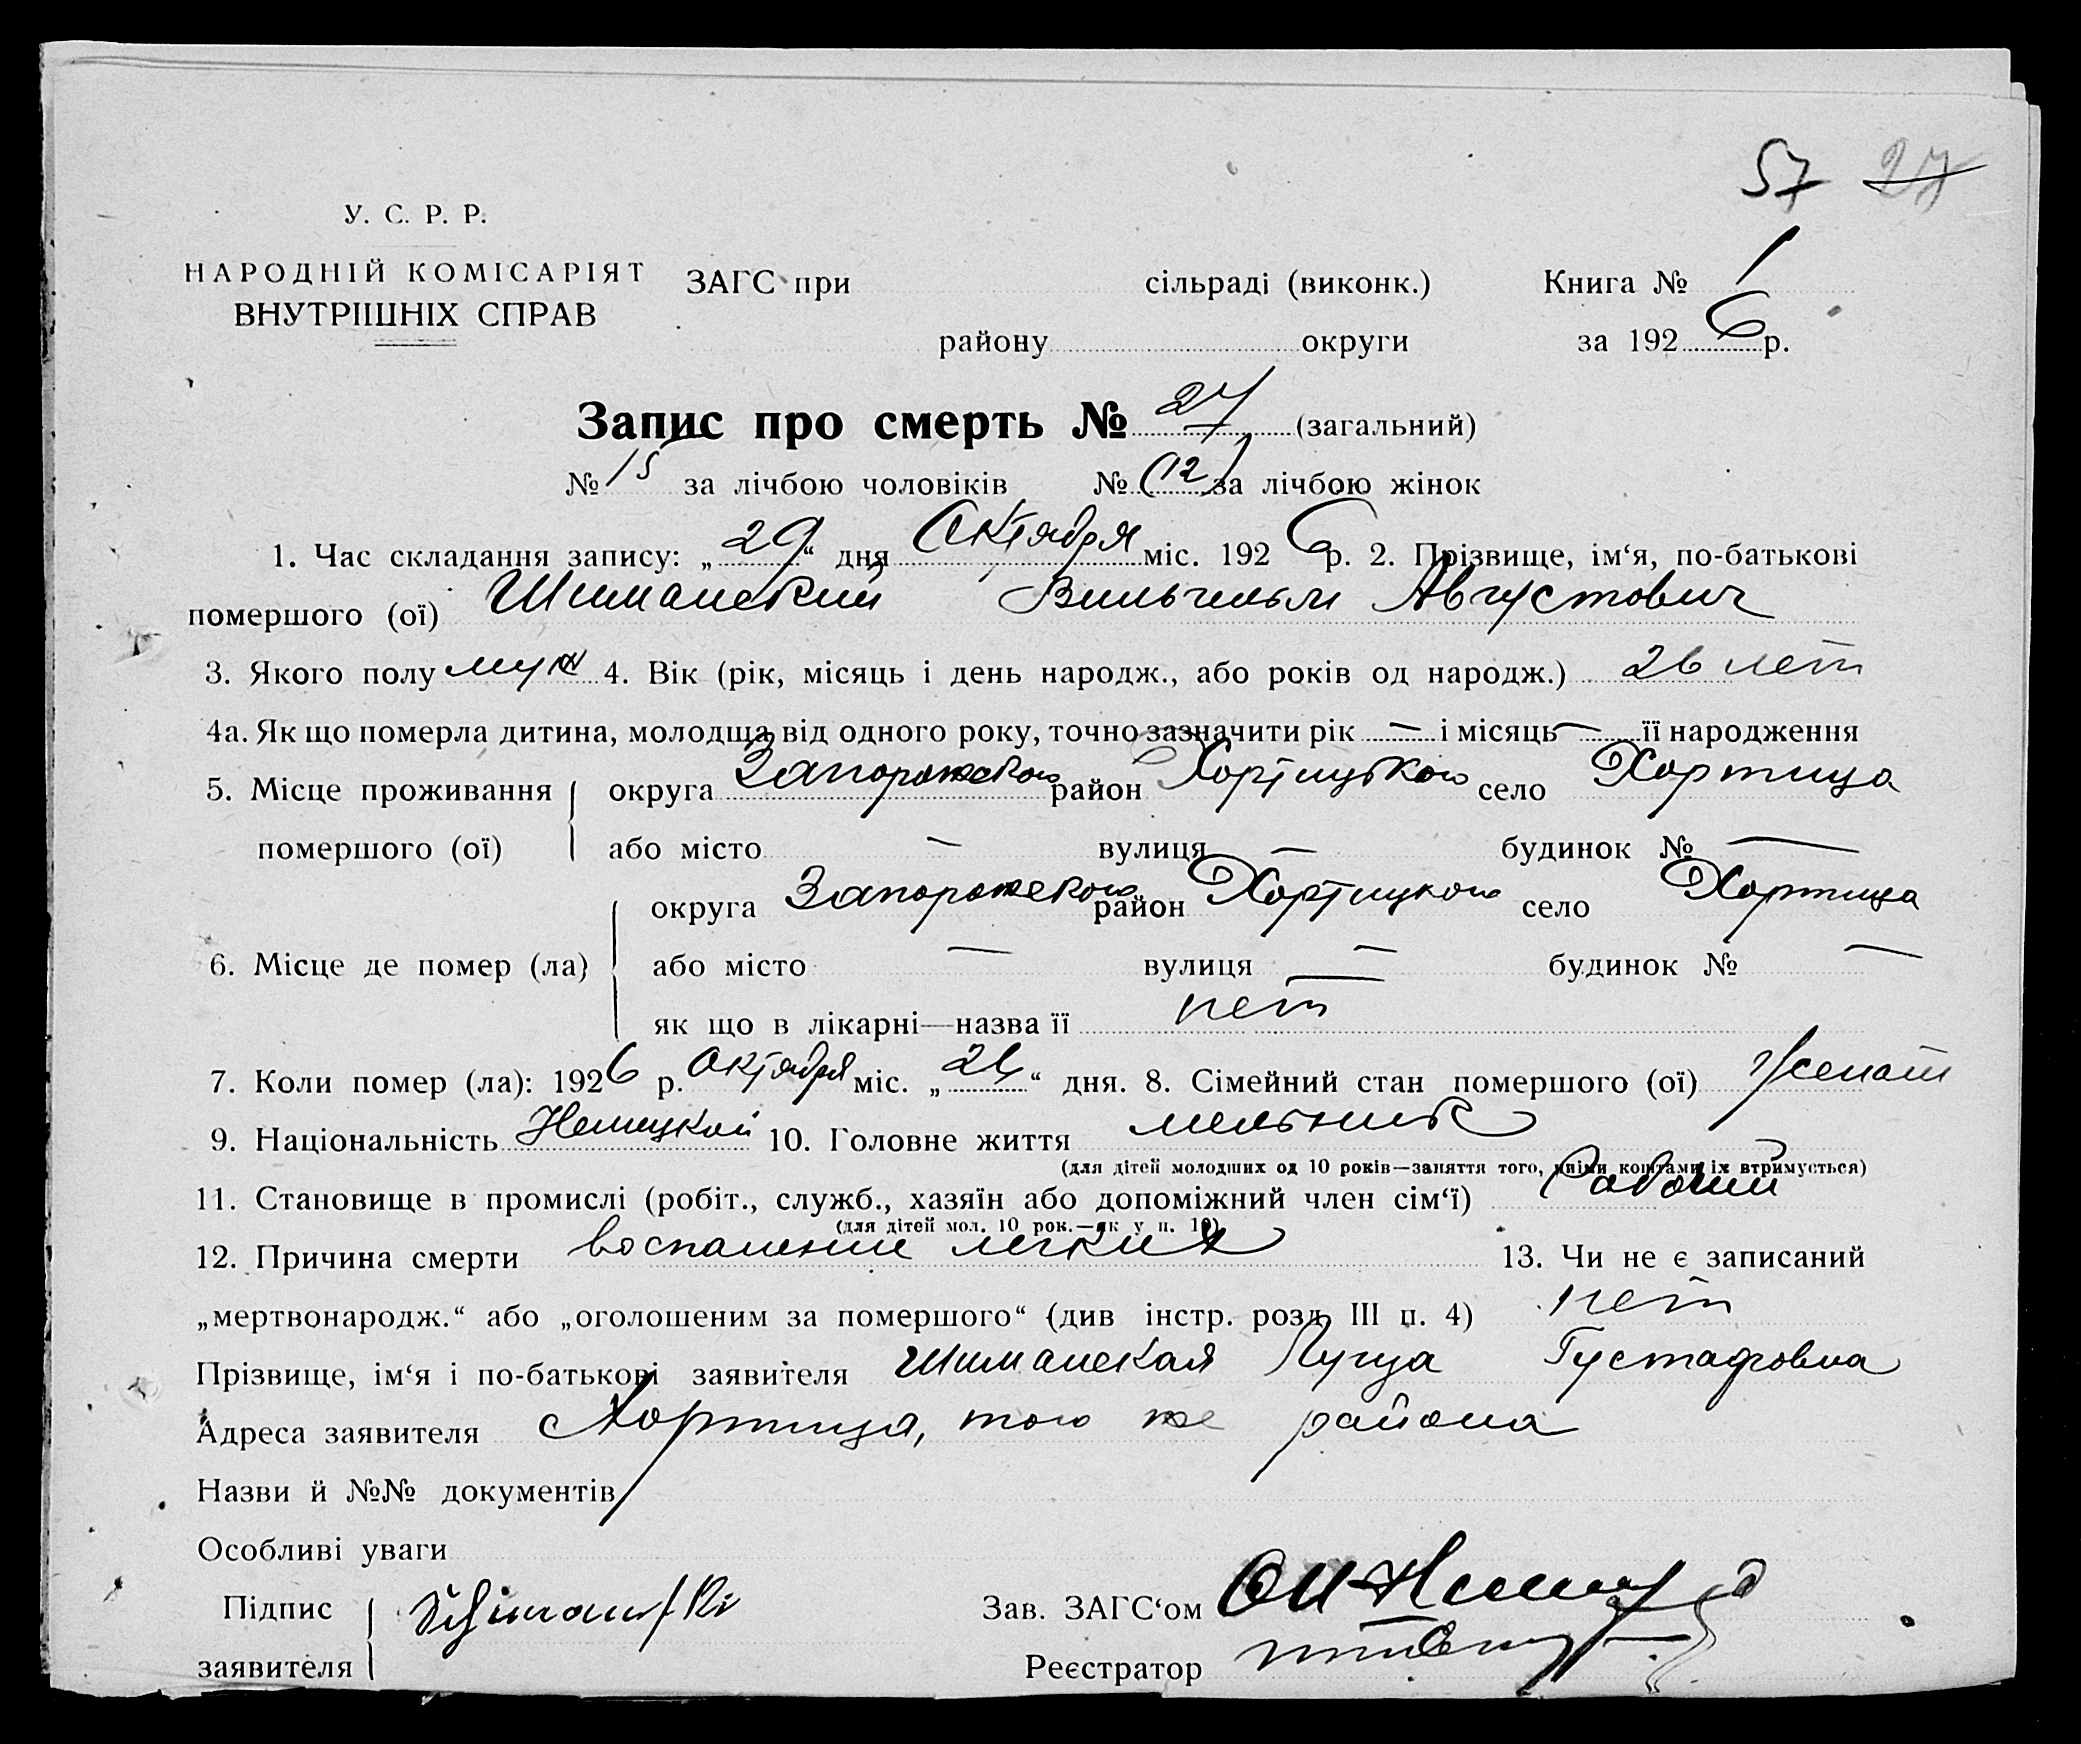 57 27
У. С. Р. Р.
НАРОДНІЙ КОМІСАРІЯТ
ВНУТРІШНІХ СПРАВ
ЗАГС при сільраді (виконк.) Книга № 1
району округи за 1926 р.
Запис про смерть № 27 (загальний)
№ 15 за лічбою чоловіків № (12) за лічбою жінок
1. Час складання запису: „29“ дня Октября міс. 1926 р. 2. Прізвище, ім‘я, по-батькові
помершого (ої) Шиманский Вильгельм Августович
3. Якого полу муж 4. Вік (рік, місяць і день народж., або років од народж.) 26 лет
4а. Як що померла дитина, молодща від одного року, точно зазначити рік — і місяць — її народження
5. Місце проживання округа Запорожского район Хортицького село Хортица
помершого (ої) або місто — вулиця — будинок № —
округа Запорожского район Хортицкого село Хортица
6. Місце де помер (ла) або місто — вулиця — будинок № —
як що в лікарні—назва її нет
7. Коли помер (ла): 1926 р. Октября міс. „26“ дня. 8. Сімейний стан помершого (ої) Женат
9. Національність Немецкой 10. Головне життя мельник
(для дітей молодших од 10 років—заняття того, чиїми коштами їх втримується)
11. Становище в промислі (робіт., служб., хазяїн або допоміжний член сім‘ї) Рабочий
(для дітей мол. 10 рок.—як у п. 10)
12. Причина смерти воспаление легких 13. Чи не є записаний
„мертвонародж.“ або „оголошеним за помершого“ (див інстр. розд. III п. 4) нет
Прізвище, ім‘я і по-батькові заявителя Шиманская Густафовна
Адреса заявителя Хортица, того же района
Назви й №№ документів
Особливі уваги
Підпис Schimanski Зав. ЗАГС‘ом
заявителя Реєстратор